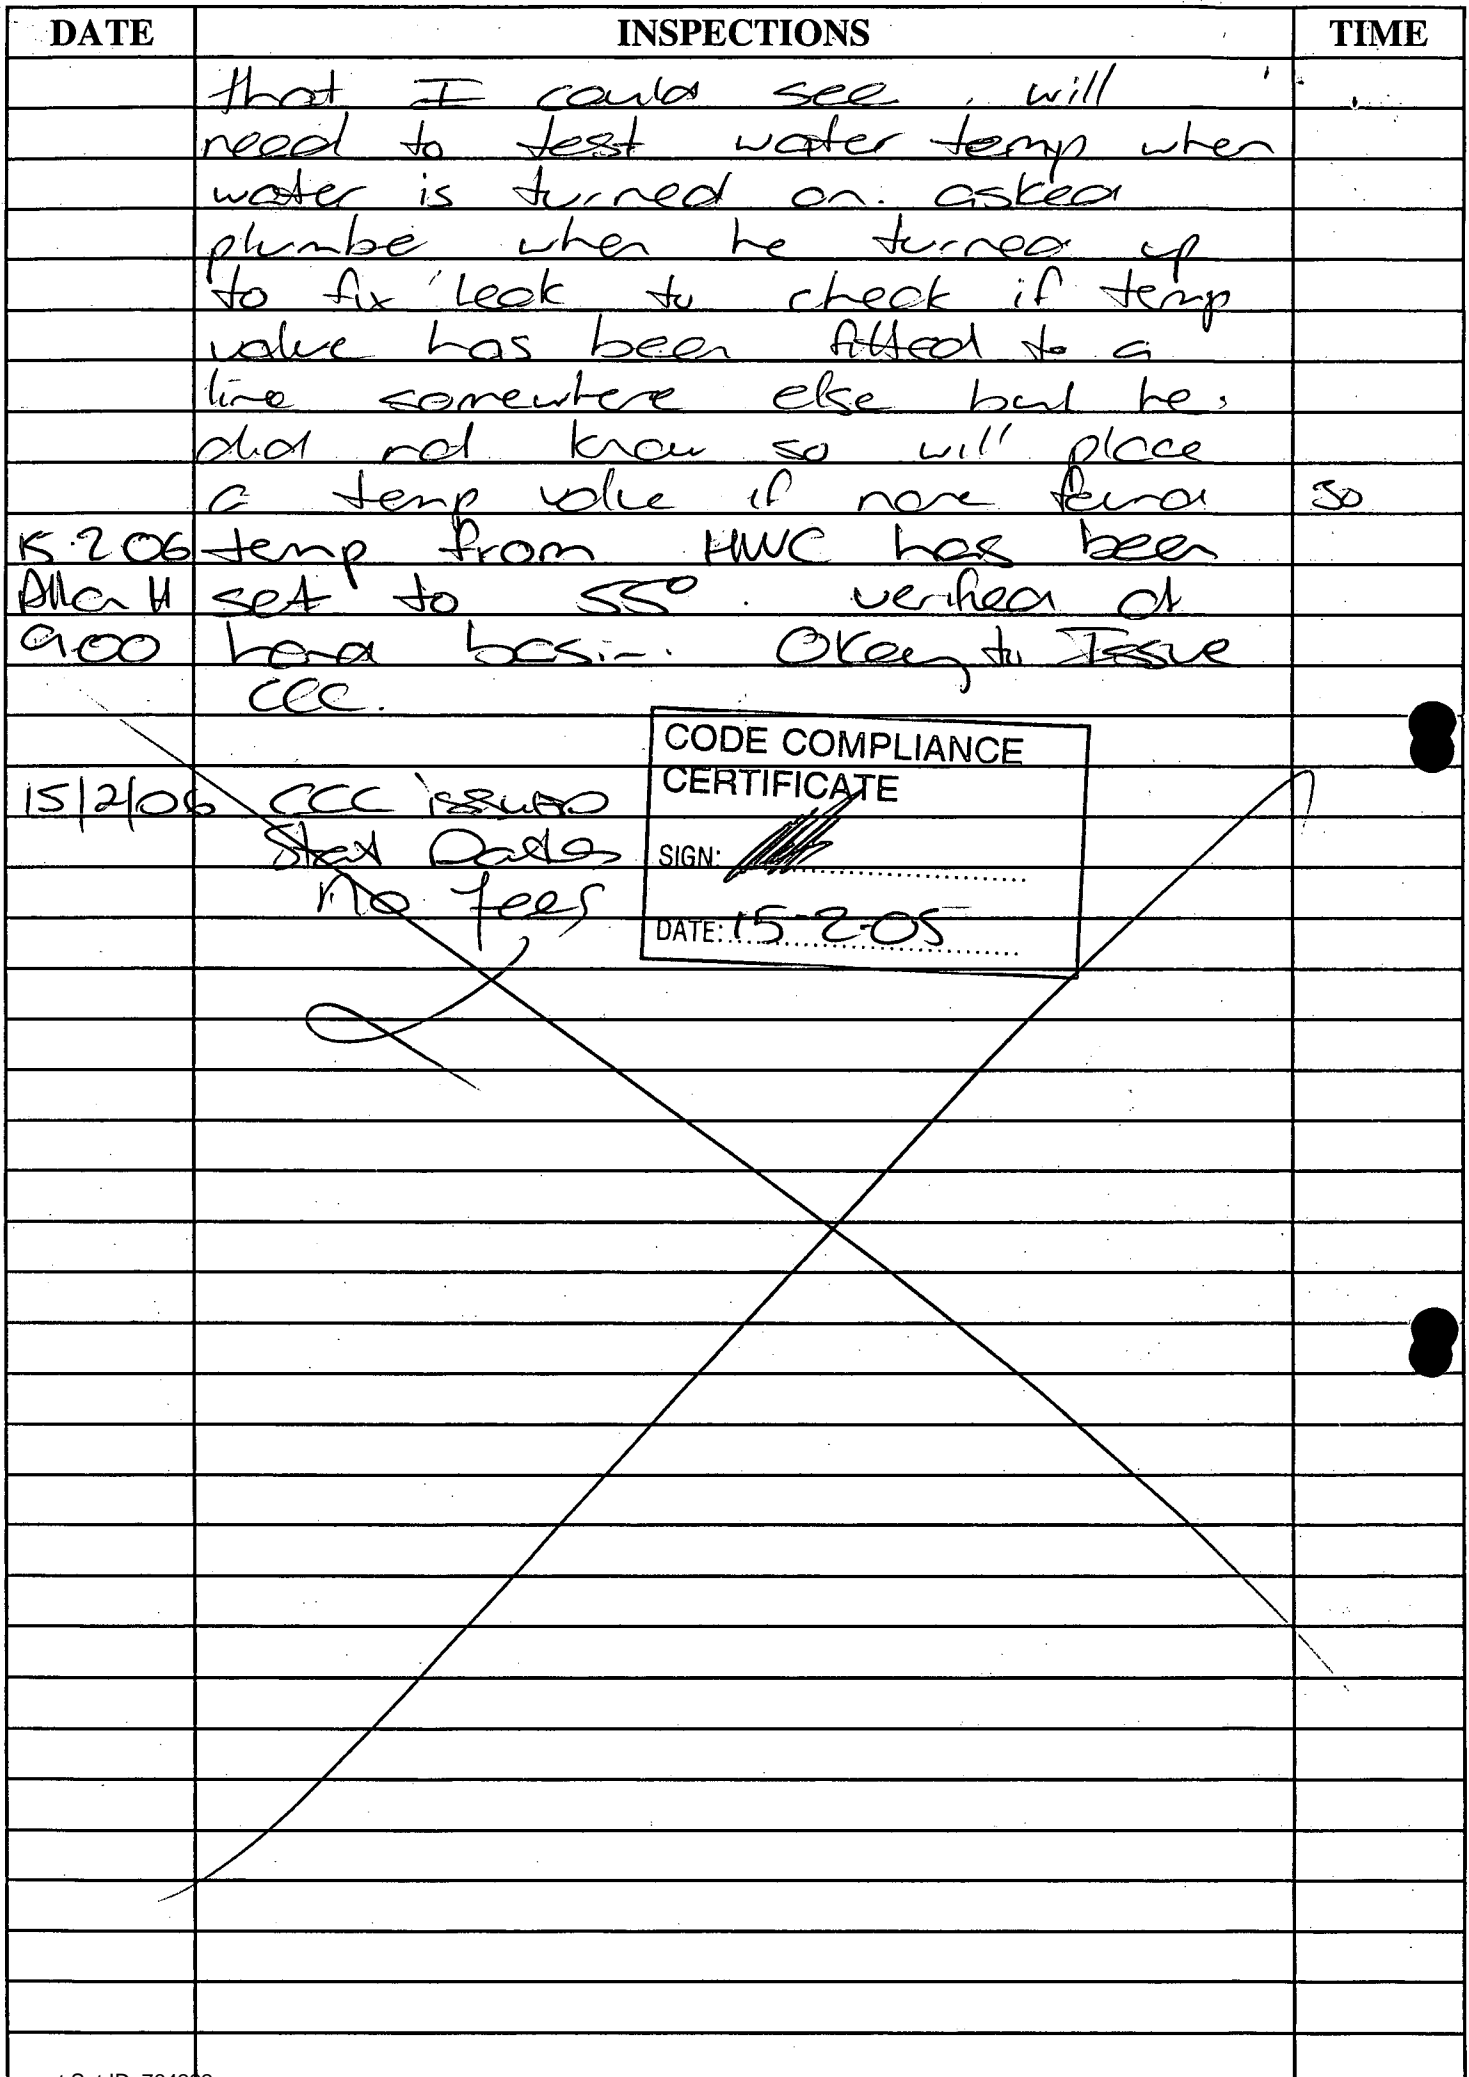 DATE INSPECTIONS TIME
that I could see . will
need to test water temp when
water is turned on. asked
plumbe when he turned up
to fix leak to check if temp
valve has been fitted to a
line somewhere else but he
did not know so will place
a temp valve if none found 30
15.2 06 temp from HWC has been
Allan H set to 55° . verified at
9.00 hand basin. Okay to Issue
CCC.
CODE COMPLIANCE
CERTIFICATE
15/2/06 CCC issued
Stat Dates
SIGN:
no fees
DATE: 15-2-05